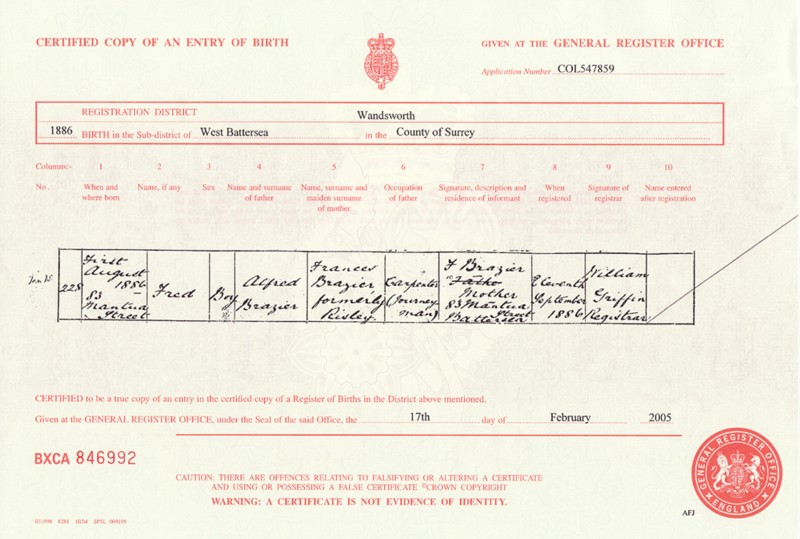 CERTIFIED COPY OF AN ENTRY OF BIRTH
GIVEN AT THE GENERAL REGISTER OFFICE
Application Number COL547859
REGISTRATION DISTRICT Wandsworth
1886 BIRTH in the Sub-district of West Battersea in the County of Surrey
Columns:- 1 2 3 4 5 6 7 8 9 10
No. When and where born Name, if any Sex Name and surname of father Name, surname and maiden surname of mother Occupation of father Signature, description and residence of informant When registered Signature of registrar Name entered after registration
228 First August 1886 83 Mantua Street Fred Boy Alfred Brazier Frances Brazier formerly Risley Carpenter (Journeyman) F Brazier Mother 83 Mantua Street Battersea Eleventh September 1886 William Griffin Registrar
CERTIFIED to be a true copy of an entry in the certified copy of a Register of Births in the District above mentioned.
Given at the GENERAL REGISTER OFFICE, under the Seal of the said Office, the 17th day of February 2005
BXCA 846992
CAUTION: THERE ARE OFFENCES RELATING TO FALSIFYING OR ALTERING A CERTIFICATE
AND USING OR POSSESSING A FALSE CERTIFICATE ©CROWN COPYRIGHT
WARNING: A CERTIFICATE IS NOT EVIDENCE OF IDENTITY.
GENERAL REGISTER OFFICE
ENGLAND
AFJ